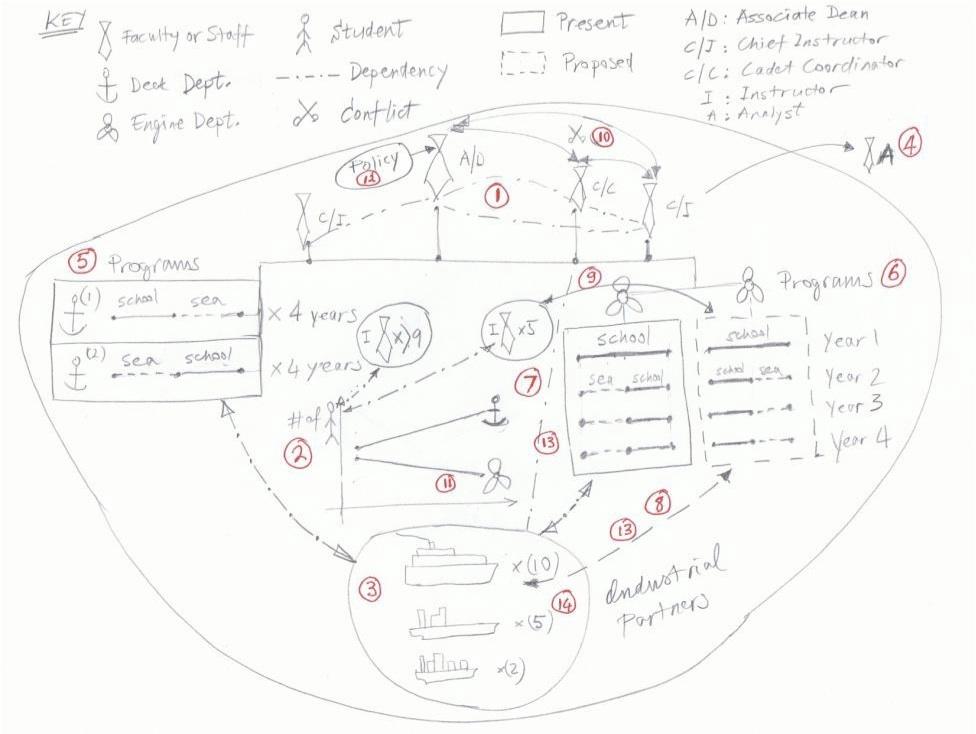 KEY
Faculty or Staff
Deck Dept.
Engine Dept.
Student
Dependency
Conflict
Present
Proposed
A/D: Associate Dean
C/I: Chief Instructor
C/C: Cadet Coordinator
I: Instructor
A: Analyst
Policy
12
A/D
10
C/C
C/I
1
C/I
A 4
5 Programs
(1) school sea × 4 years
(2) sea school × 4 years
I × 9
I × 5
9
Programs 6
school
sea school
school
school sea
Year 1
Year 2
Year 3
Year 4
7
# of
2
11
13
8
13
3
× (10)
14
× (5)
× (2)
Industrial
Partners